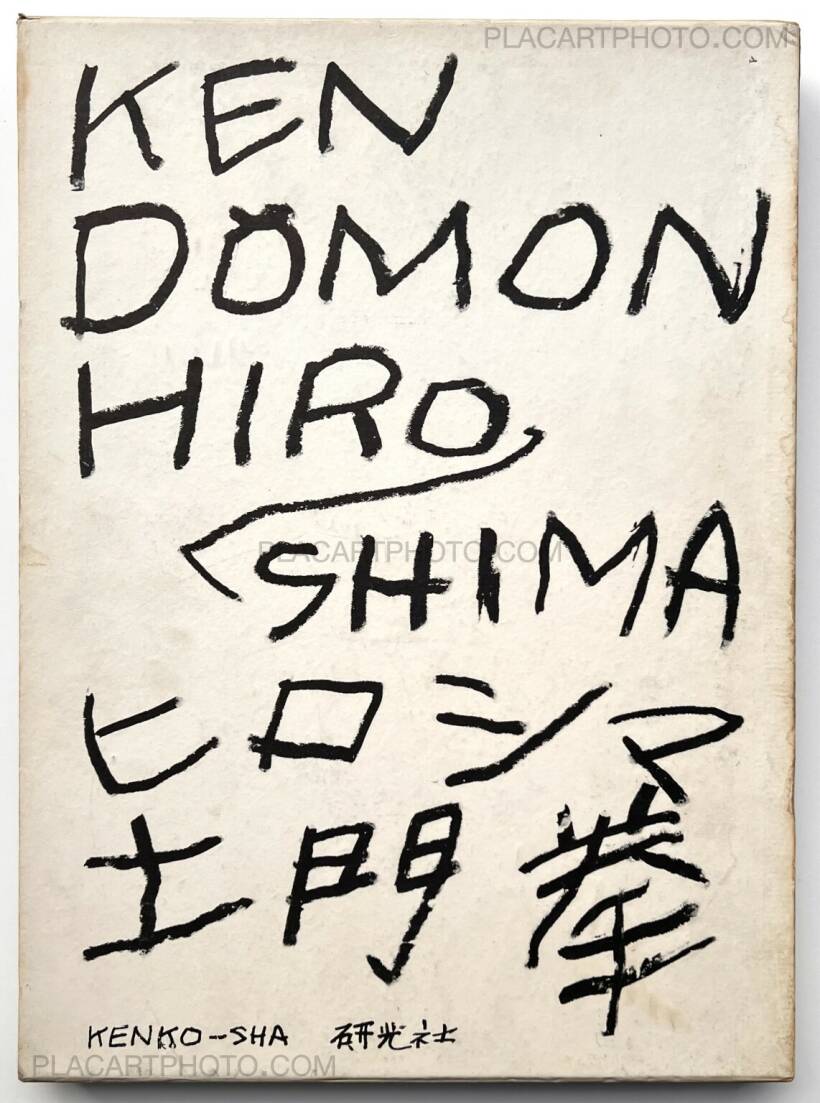 PLACARTPHOTO.COM
KEN
DOMON
HIRO
SHIMA
PLACARTPHOTO.COM
ヒロシマ
土門拳
KENKO-SHA 研光社
PLACARTPHOTO.COM